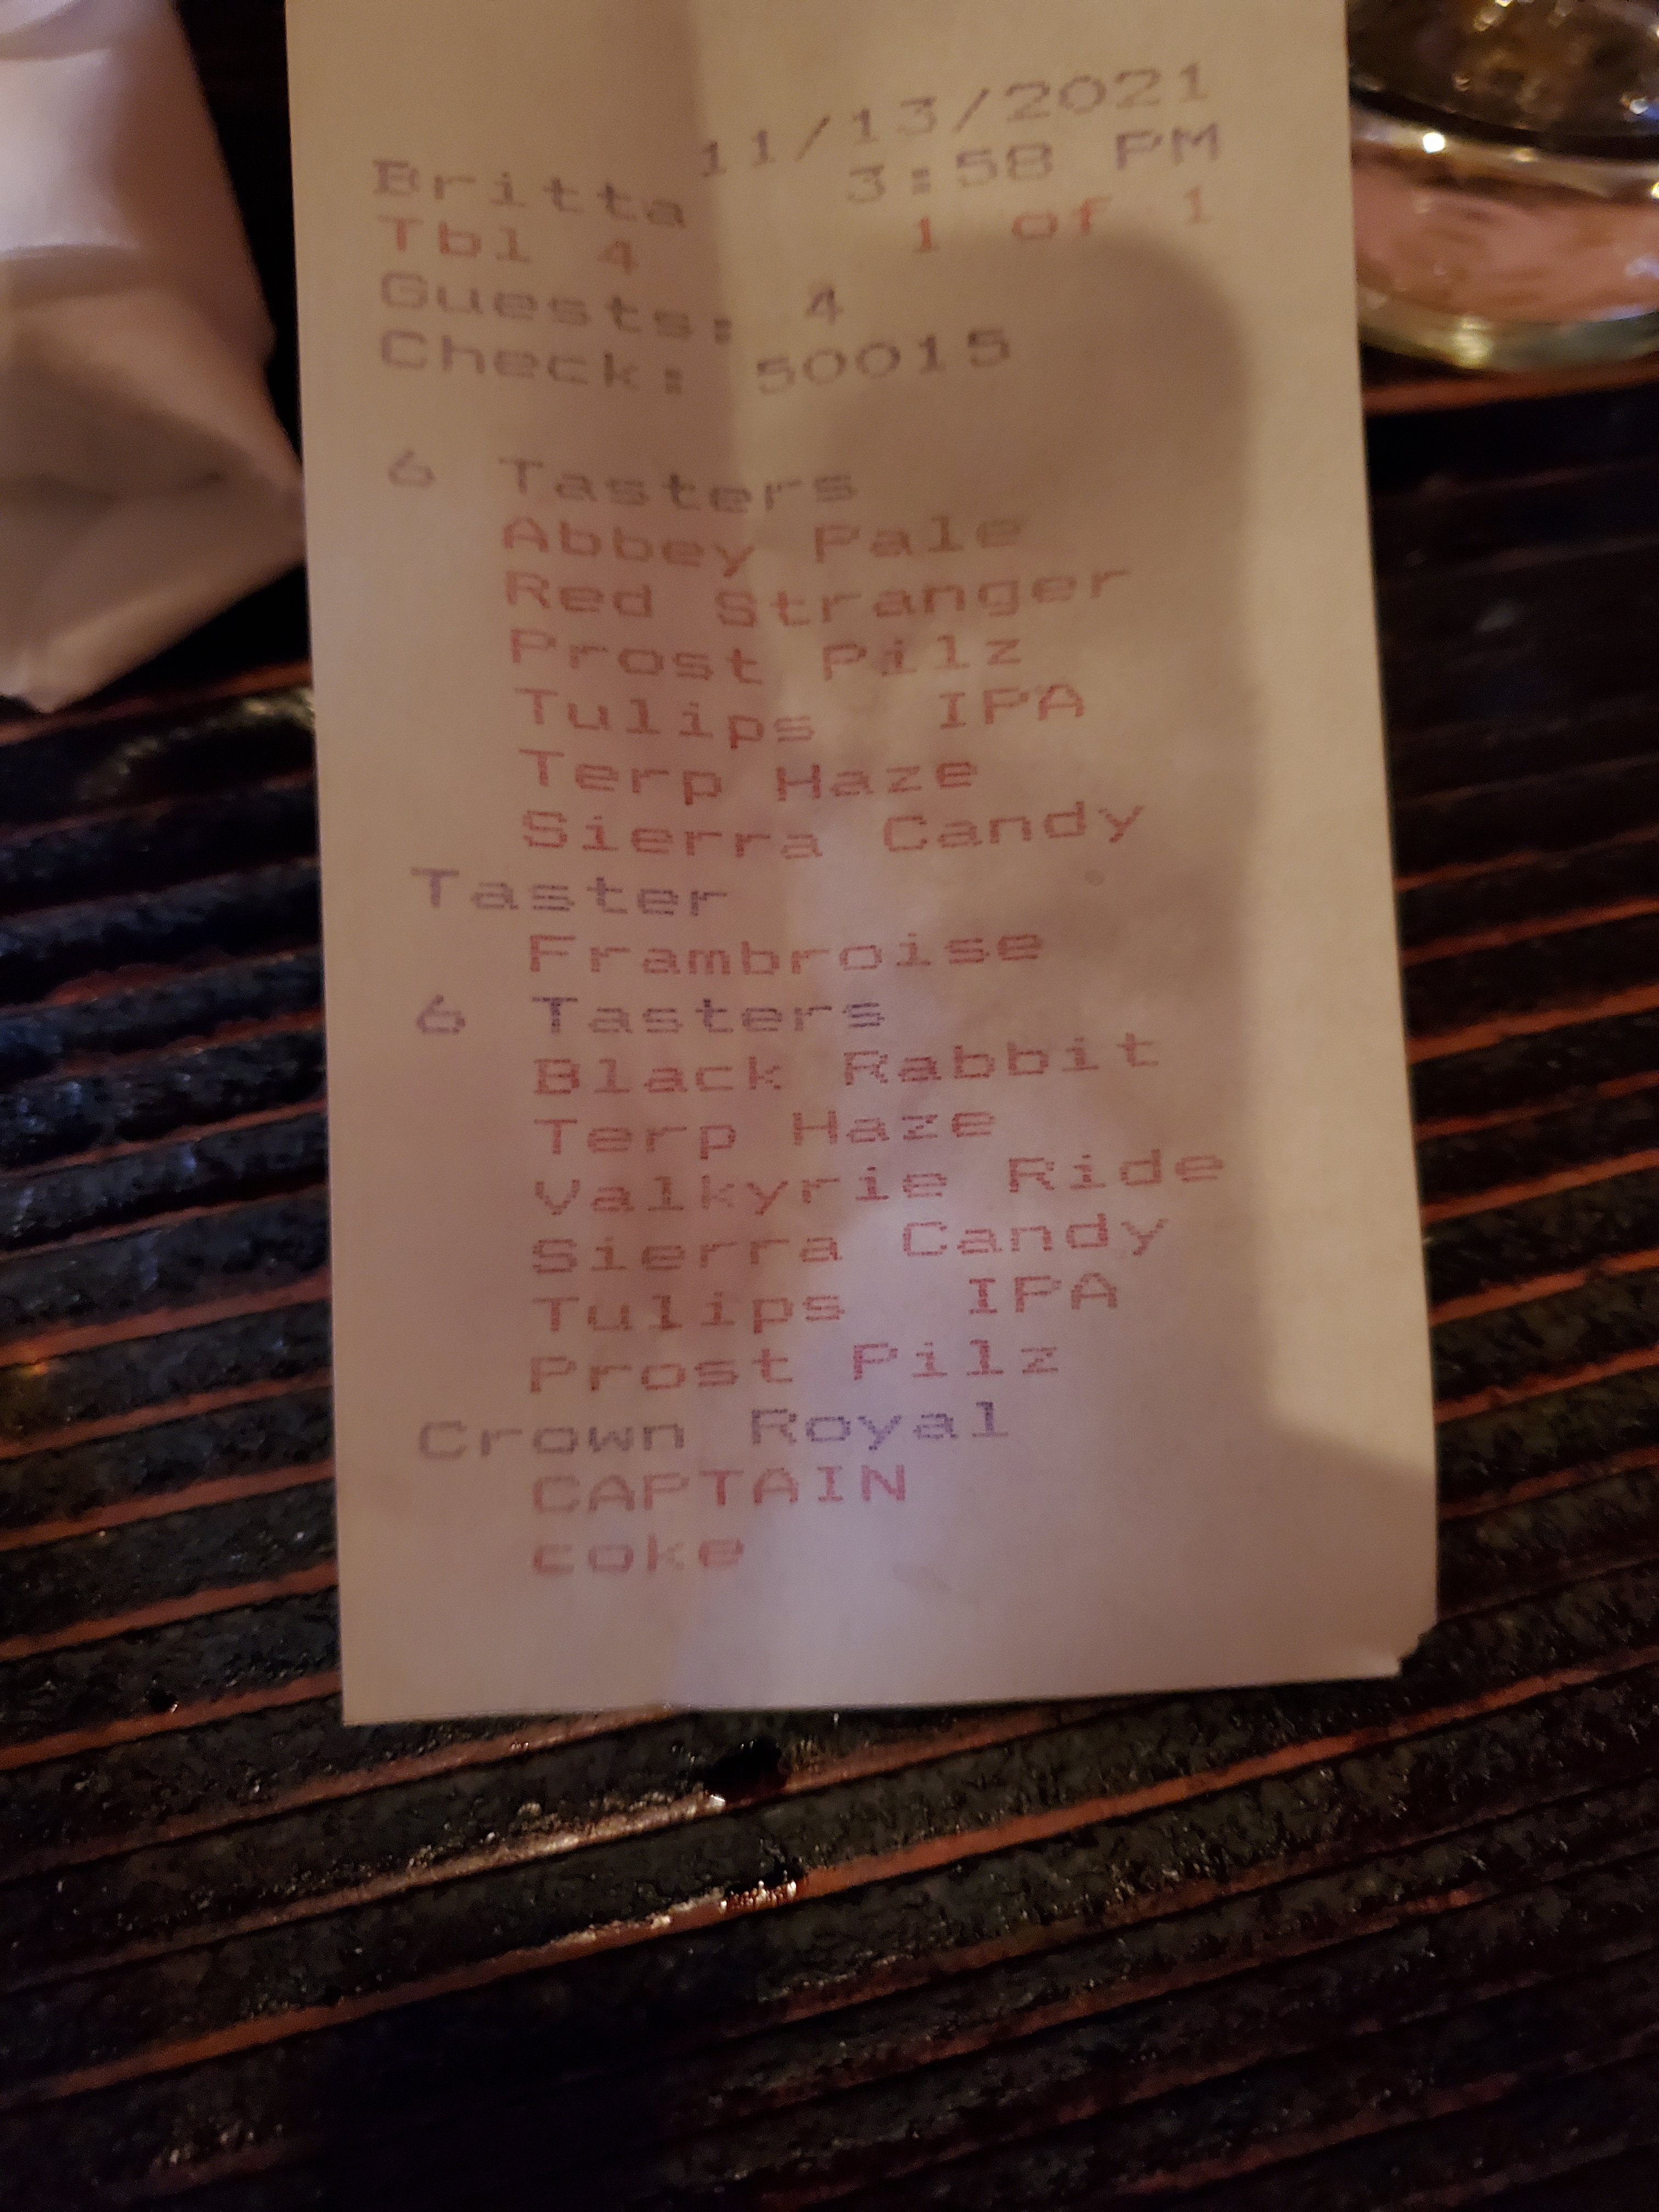 11/13/2021
Britta 3:58 PM
Tbl 4 1 of 1
Guests: 4
Check: 50015
6 Tasters
Abbey Pale
Red Stranger
Prost Pilz
Tulips IPA
Terp Haze
Sierra Candy
Taster
Frambroise
6 Tasters
Black Rabbit
Terp Haze
Valkyrie Ride
Sierra Candy
Tulips IPA
Prost Pilz
Crown Royal
CAPTAIN
coke